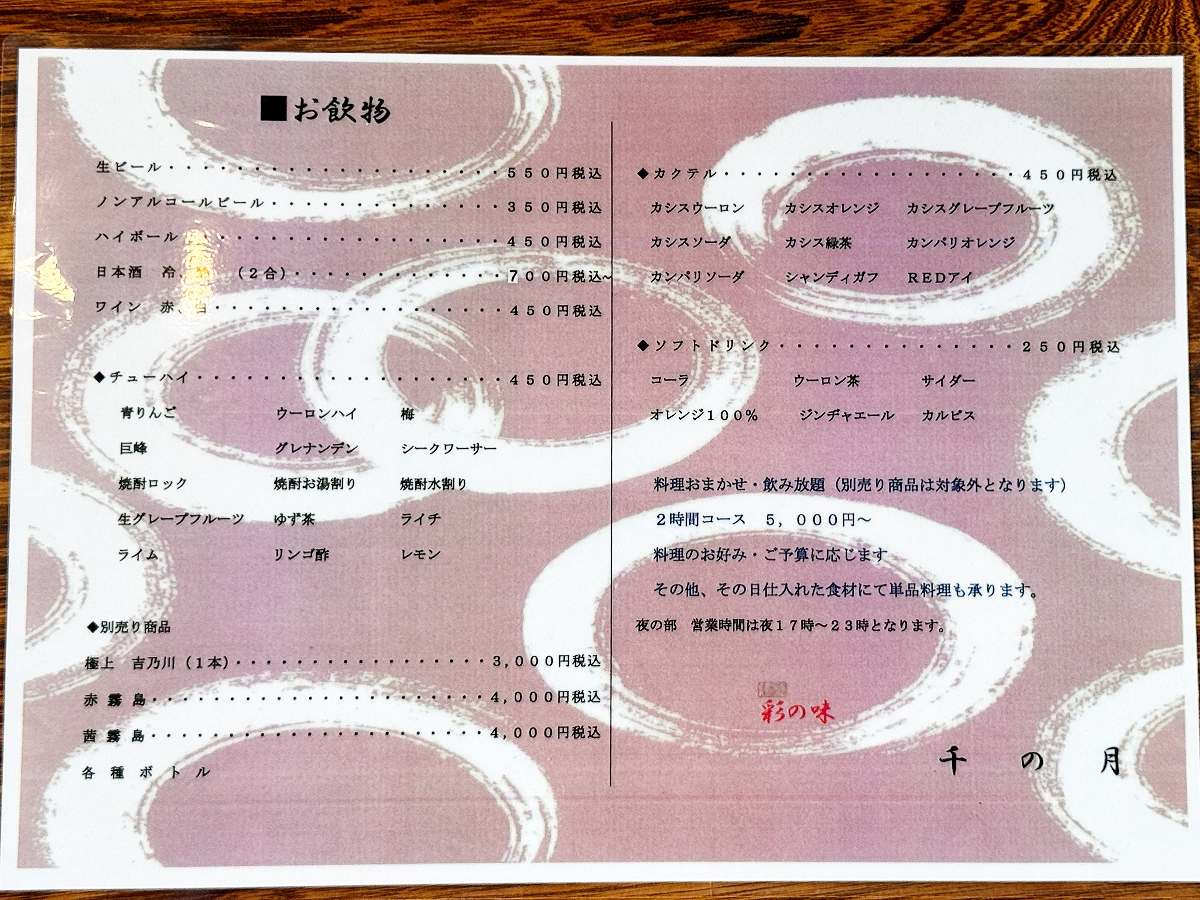 ■お飲物
生ビール・・・・・・・・・・・・・・・・・・・・５５０円税込
ノンアルコールビール・・・・・・・・・・・・・・３５０円税込
ハイボール・・・・・・・・・・・・・・・・・・・４５０円税込
日本酒　冷、　（２合）・・・・・・・・・・・・・７００円税込~
ワイン　赤、白・・・・・・・・・・・・・・・・・４５０円税込
◆チューハイ・・・・・・・・・・・・・・・・・・４５０円税込
青りんご　ウーロンハイ　梅
巨峰　グレナンデン　シークワーサー
焼酎ロック　焼酎お湯割り　焼酎水割り
生グレープフルーツ　ゆず茶　ライチ
ライム　リンゴ酢　レモン
◆別売り商品
極上　吉乃川（１本）・・・・・・・・・・・・・・３,０００円税込
赤 霧 島・・・・・・・・・・・・・・・・・・・・４,０００円税込
茜 霧 島・・・・・・・・・・・・・・・・・・・・４,０００円税込
各 種 ボ ト ル
◆カクテル・・・・・・・・・・・・・・・・・・４５０円税込
カシスウーロン　カシスオレンジ　カシスグレープフルーツ
カシスソーダ　カシス緑茶　カンパリオレンジ
カンパリソーダ　シャンディガフ　ＲＥＤアイ
◆ソフトドリンク・・・・・・・・・・・・・・・２５０円税込
コーラ　ウーロン茶　サイダー
オレンジ１００％　ジンヂャエール　カルピス
料理おまかせ・飲み放題（別売り商品は対象外となります）
２時間コース　５，０００円～
料理のお好み・ご予算に応じます
その他、その日仕入れた食材にて単品料理も承ります。
夜の部　営業時間は夜１７時～２３時となります。
彩の味
千　の　月